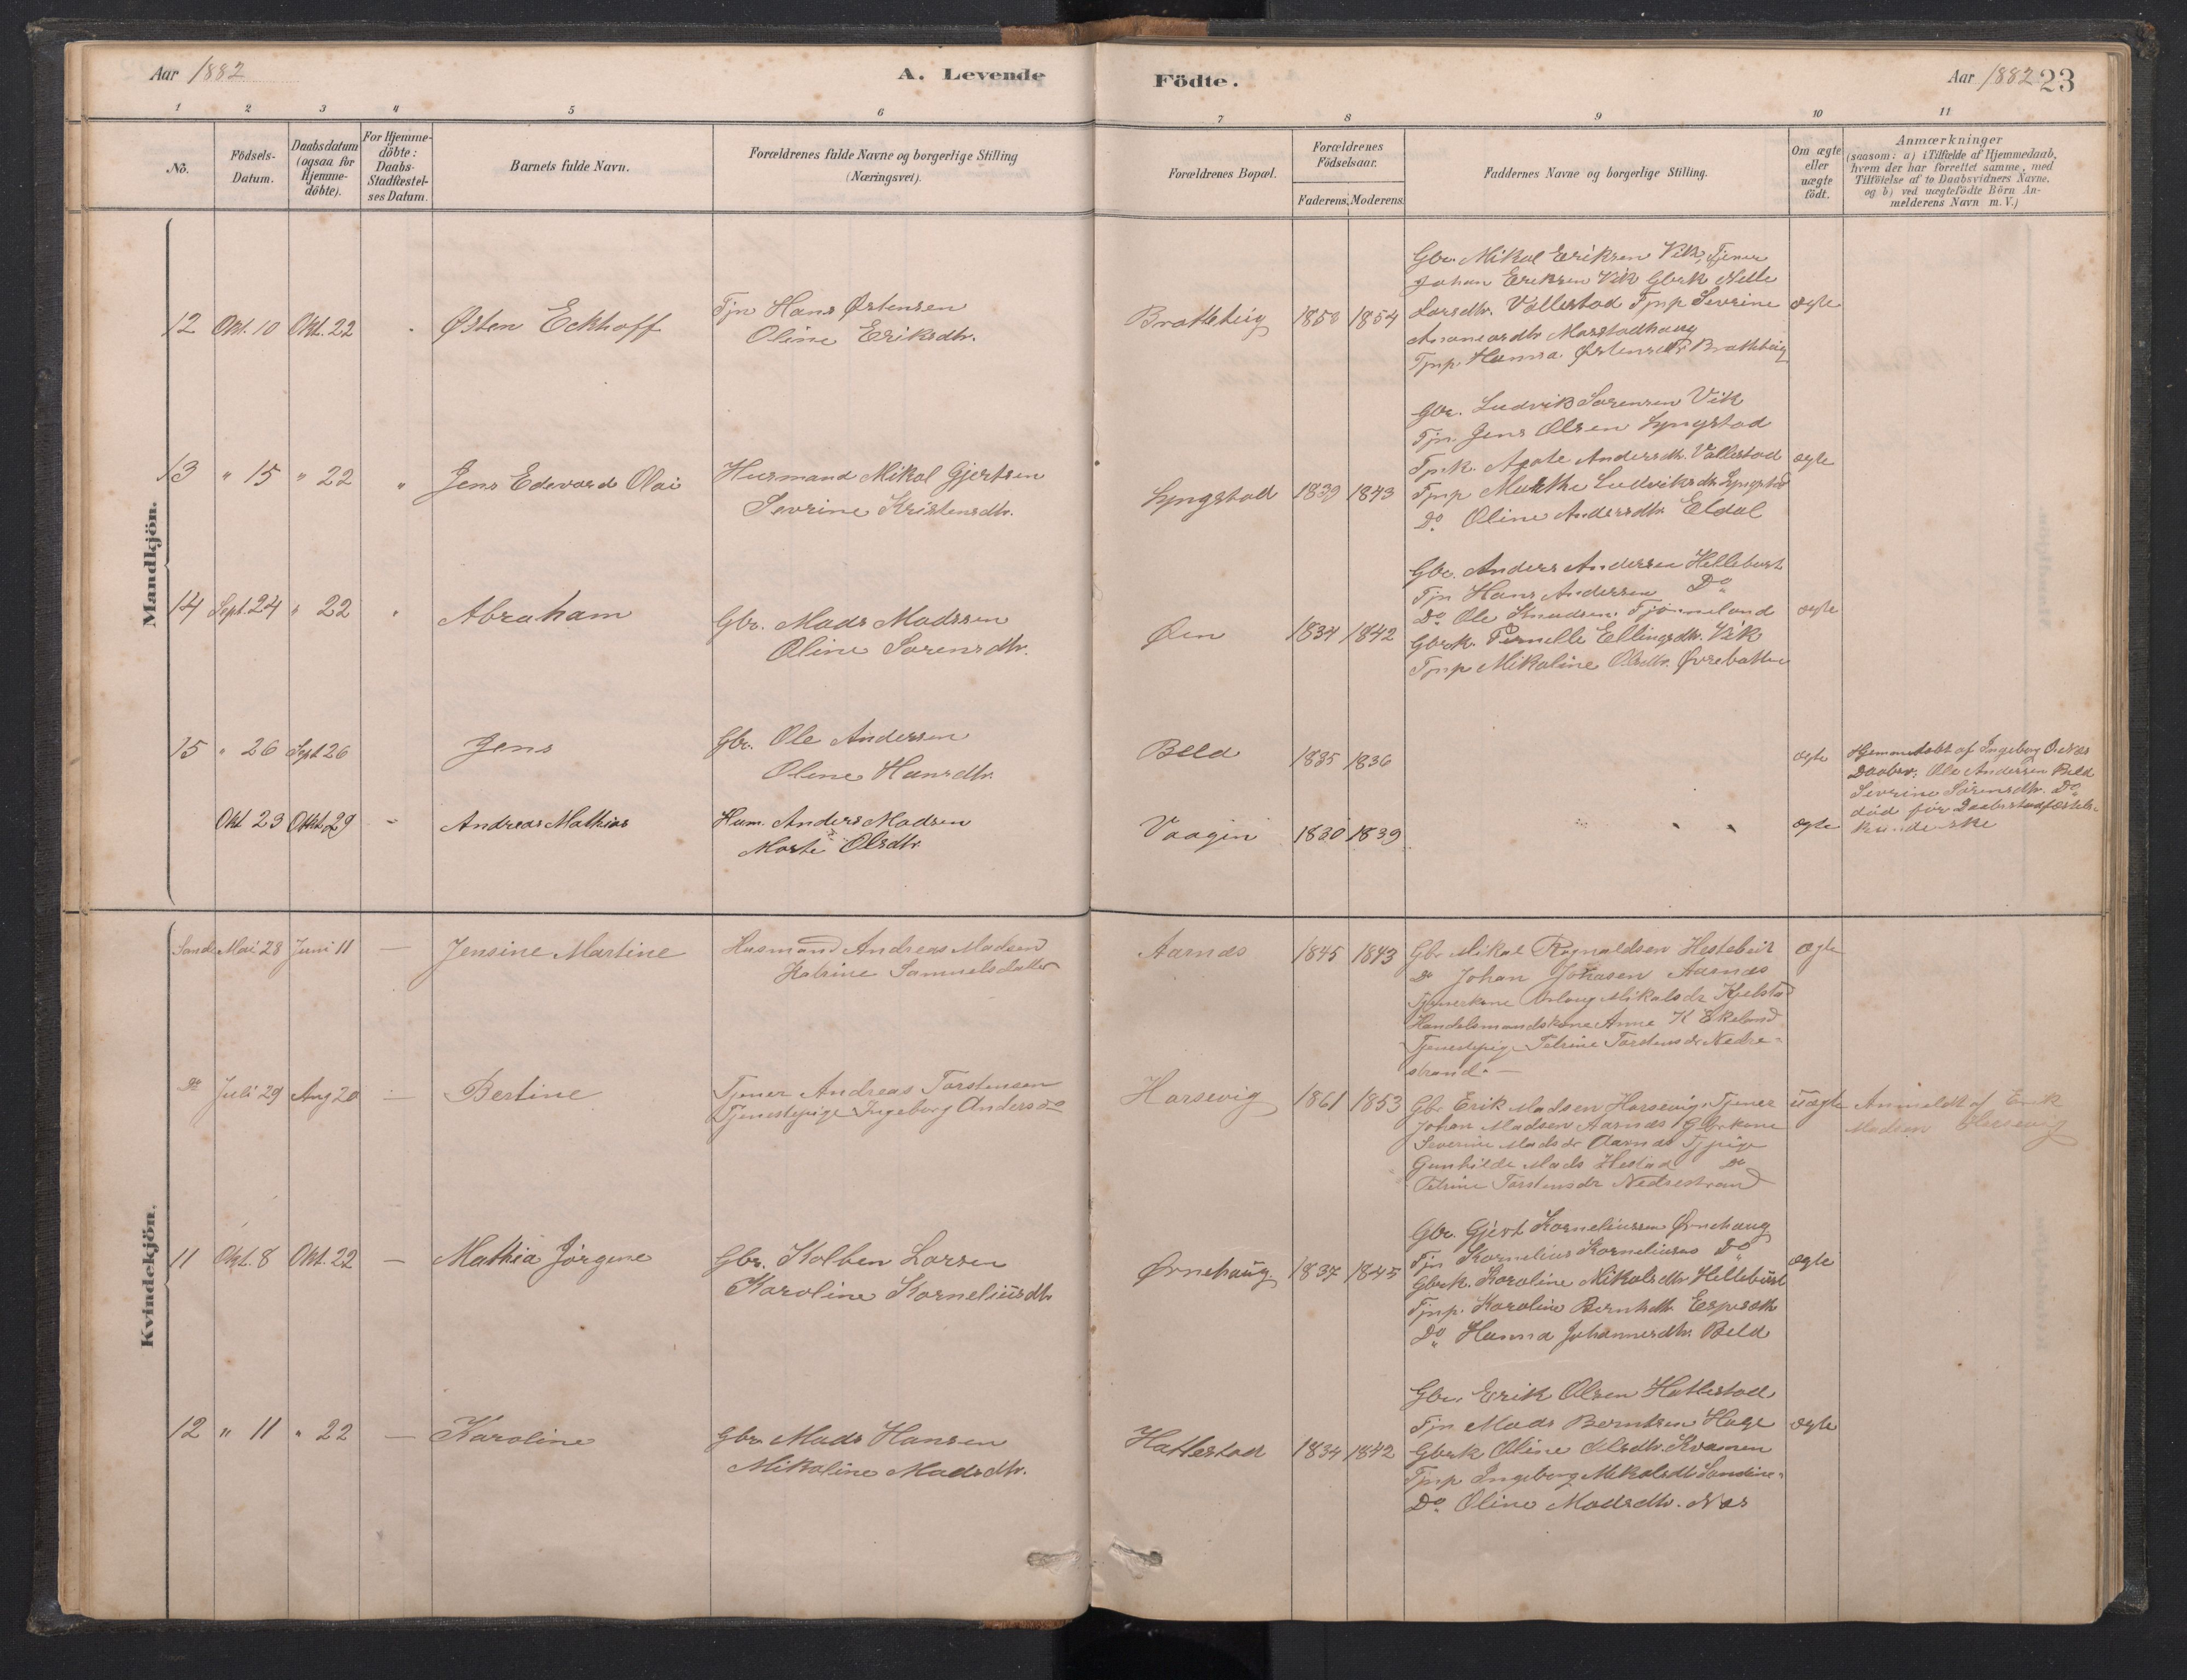 Aar 1882
A. Levende
Födte.
Aar 1882 23
1 2 3 4 5 6 7 8 9 10 11
No.
Födsels-
Datum.
Daabsdatum
(ogsaa for
Hjemme-
döbte).
For Hjemme-
döbte:
Daabs-
Stadfæstel-
ses Datum.
Barnets fulde Navn.
Forældrenes fulde Navne og borgerlige Stilling
(Næringsvei).
Forældrenes Bopæl.
Forældrenes
Födselsaar.
Faderens. Moderens.
Faddernes Navne og borgerlige Stilling.
Om ægte
eller
uægte
födt.
Anmærkninger
(saasom: a) i Tilfælde af Hjemmedaab,
hvem der har forrettet samme, med
Tilföielse af to Daabsvidners Navne,
og b) ved uægtefödte Börn An-
melderens Navn m. V.)
Mandkjön.
12 Okt. 10 Okt. 22 Østen Eckhoff
Tjn Hans Østensen
Oline Eriksdtr.
Bratteteig 1858 1854
Gbr. Mikal Eriksen Vik, Tjener
Johan Eriksen Vik Gbrk Nille
Larsdtr. Vallestad Tjnp Severine ægte
Ananiasdtr Masstadhaug
Tjnp. Hanna Østensdtr Bratteteig
13 " 15 " 22 " Jens Edevard Olai
Husmand Mikal Gjertsen
Severine Kristensdtr.
Lyngstad 1839 1843
Gbr. Ludvik Sørensen Vik
Tjn. Jens Olsen Lyngstad
Tjn.k. Agate Andersdtr. Vallestad ægte
Tjnp Marthe Ludviksdtr Lyngstad
Do Oline Andersdtr. Eldal
14 Sept. 24 " 22 " Abraham
Gbr. Mads Madssen
Oline Sørensdtr.
Øen 1834 1842
Gbr. Anders Andersen Hellebust
Tjn Hans Andersen Do
Do Ole Knudsen Tjønneland ægte
Gbrk. Pernelle Ellingsdtr. Vik
Tjnp Mikaline Olsdtr. Øvrebotten
15 " 26 Sept 26 Jens
Gbr. Ole Andersen
Oline Hansdtr.
Beld 1835 1836 ægte
Hjemmedøbt af Ingeborg O. Næs
Daabsv. Ole Andersen Beld
Severine Sørensdtr. Do
død før Daabsstadfæstels-
kunde ske
Okt 23 Okt. 29 - Andreas Mathias
Husm. Anders Madsen
Marte Olsdtr.
Vaagen 1830 1839 " " ægte
Kvindekjön.
Sande Mai 28 Juni 11 — Jensine Martine
Husmand Andreas Madsen
Katrine Samuelsdatter
Aarnæs 1845 1843
Gbr Mikal Rognaldsen Hestebeit ægte
Do Johan Johasen Aarnæs
Tjenerkone Mikalsdr Kjelstad
Handelsmandskone Anne K Ekeland
Tjenestepige Petrine Torstensdr Nedre-
strand. —
Do Juli 29 Aug 20 — Bertine
Tjener Andreas Torstensen
Tjenestepige Ingeborg Andersdr
Horsevig 1861 1853
Gbr Erik Madsen Horsevig, Tjener uægte
Johan Madsen Aarnæs Gbrkone
Severine Madsdr Aarnæs Tj pige
Gunhilde Mads Hestad Do
Petrine Torstensdr Nedrestrand
Anmeldt af Erik
Madsen Horsevig
11 Okt. 8 Okt. 22 — Mathia Jørgine
Gbr. Kolben Larsen
Karoline Korneliusdtr.
Ørnehaug 1837 1845
Gbr. Gjert Korneliussen Ørnehaug
Tjn Kornelius Korneliusen Do ægte
Gbrk. Karoline Mikalsdtr Hellebust
Tjnp. Karoline Berntsdtr. Espesæth
Do Hanna Johannesdtr. Beld
12 " 11 " 22 — Karoline
Gbr. Mads Hansen
Mikaline Madsdtr.
Hatlestad 1834 1842
Gbr. Erik Olsen Hatlestad
Tjn Mads Berntsen Hage ægte
Gbrk Oline Olsdtr. Kvamen
Tjnp Ingeborg Mikalsdtr Sandene.
Do Oline Madsdtr. Næs